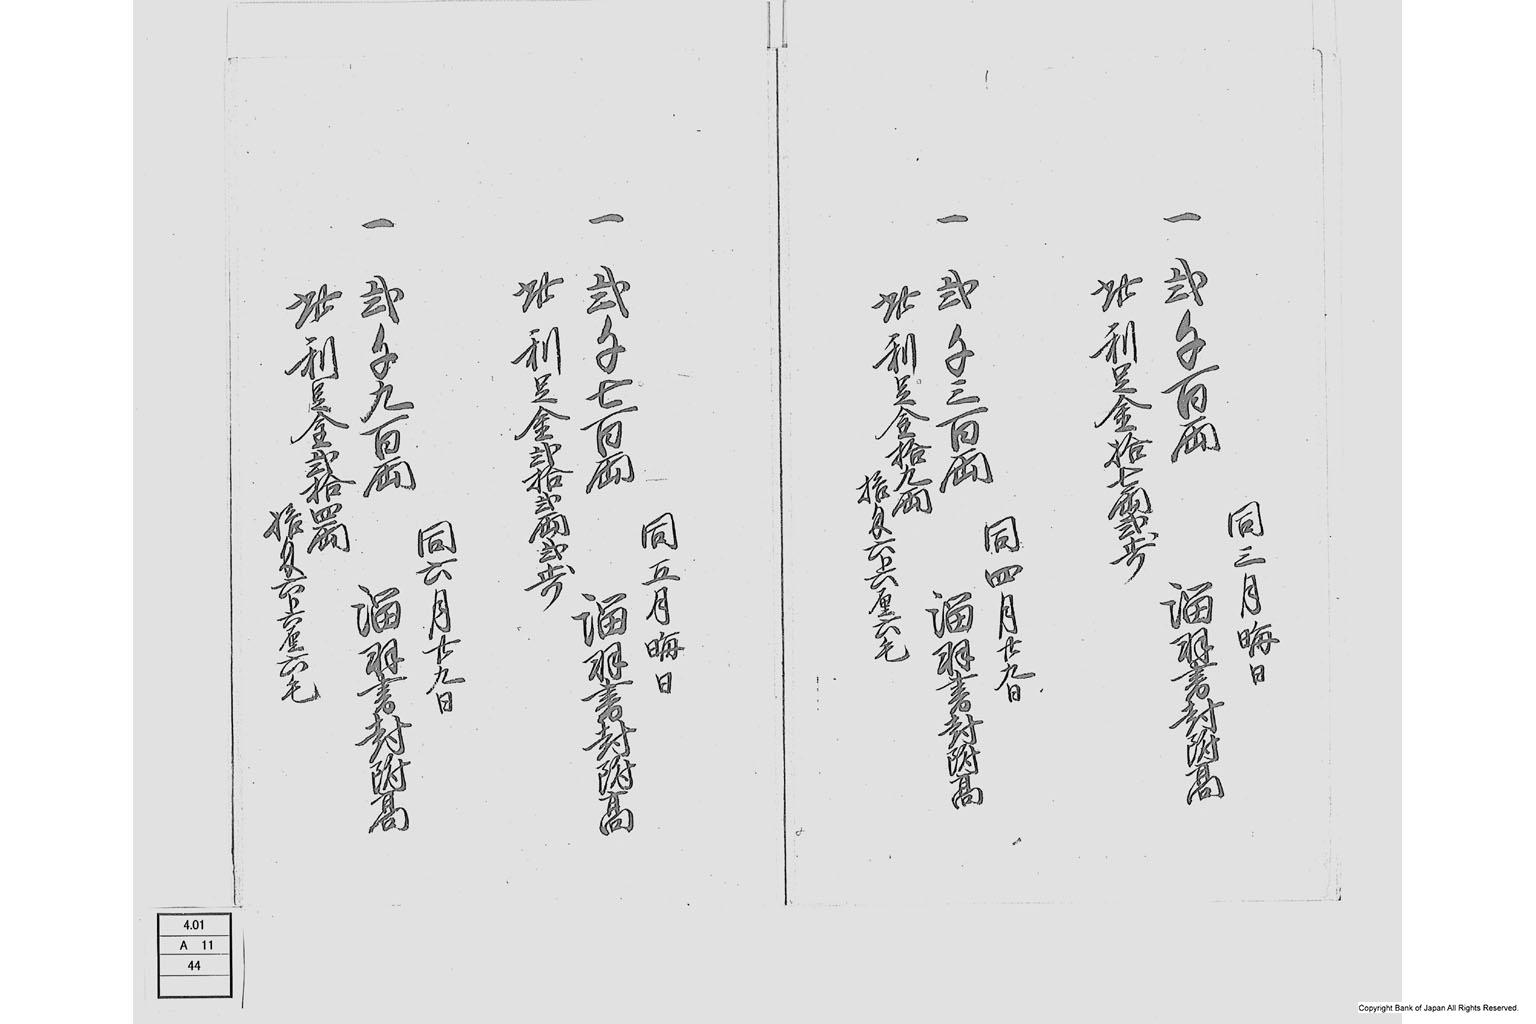 同三月晦日
一 弐千百両 溜羽書封附高
此利足金拾七両弐歩
同四月廿九日
一 弐千三百両 溜羽書封附高
此利足金拾九両
拾匁六分六厘六毛
同五月晦日
一 弐千七百両 溜羽書封附高
此利足金弐拾弐両弐歩
同六月廿九日
一 弐千九百両 溜羽書封附高
此利足金弐拾四両
拾匁六分六厘六毛
4.01
A 11
44
Copyright Bank of Japan All Rights Reserved.